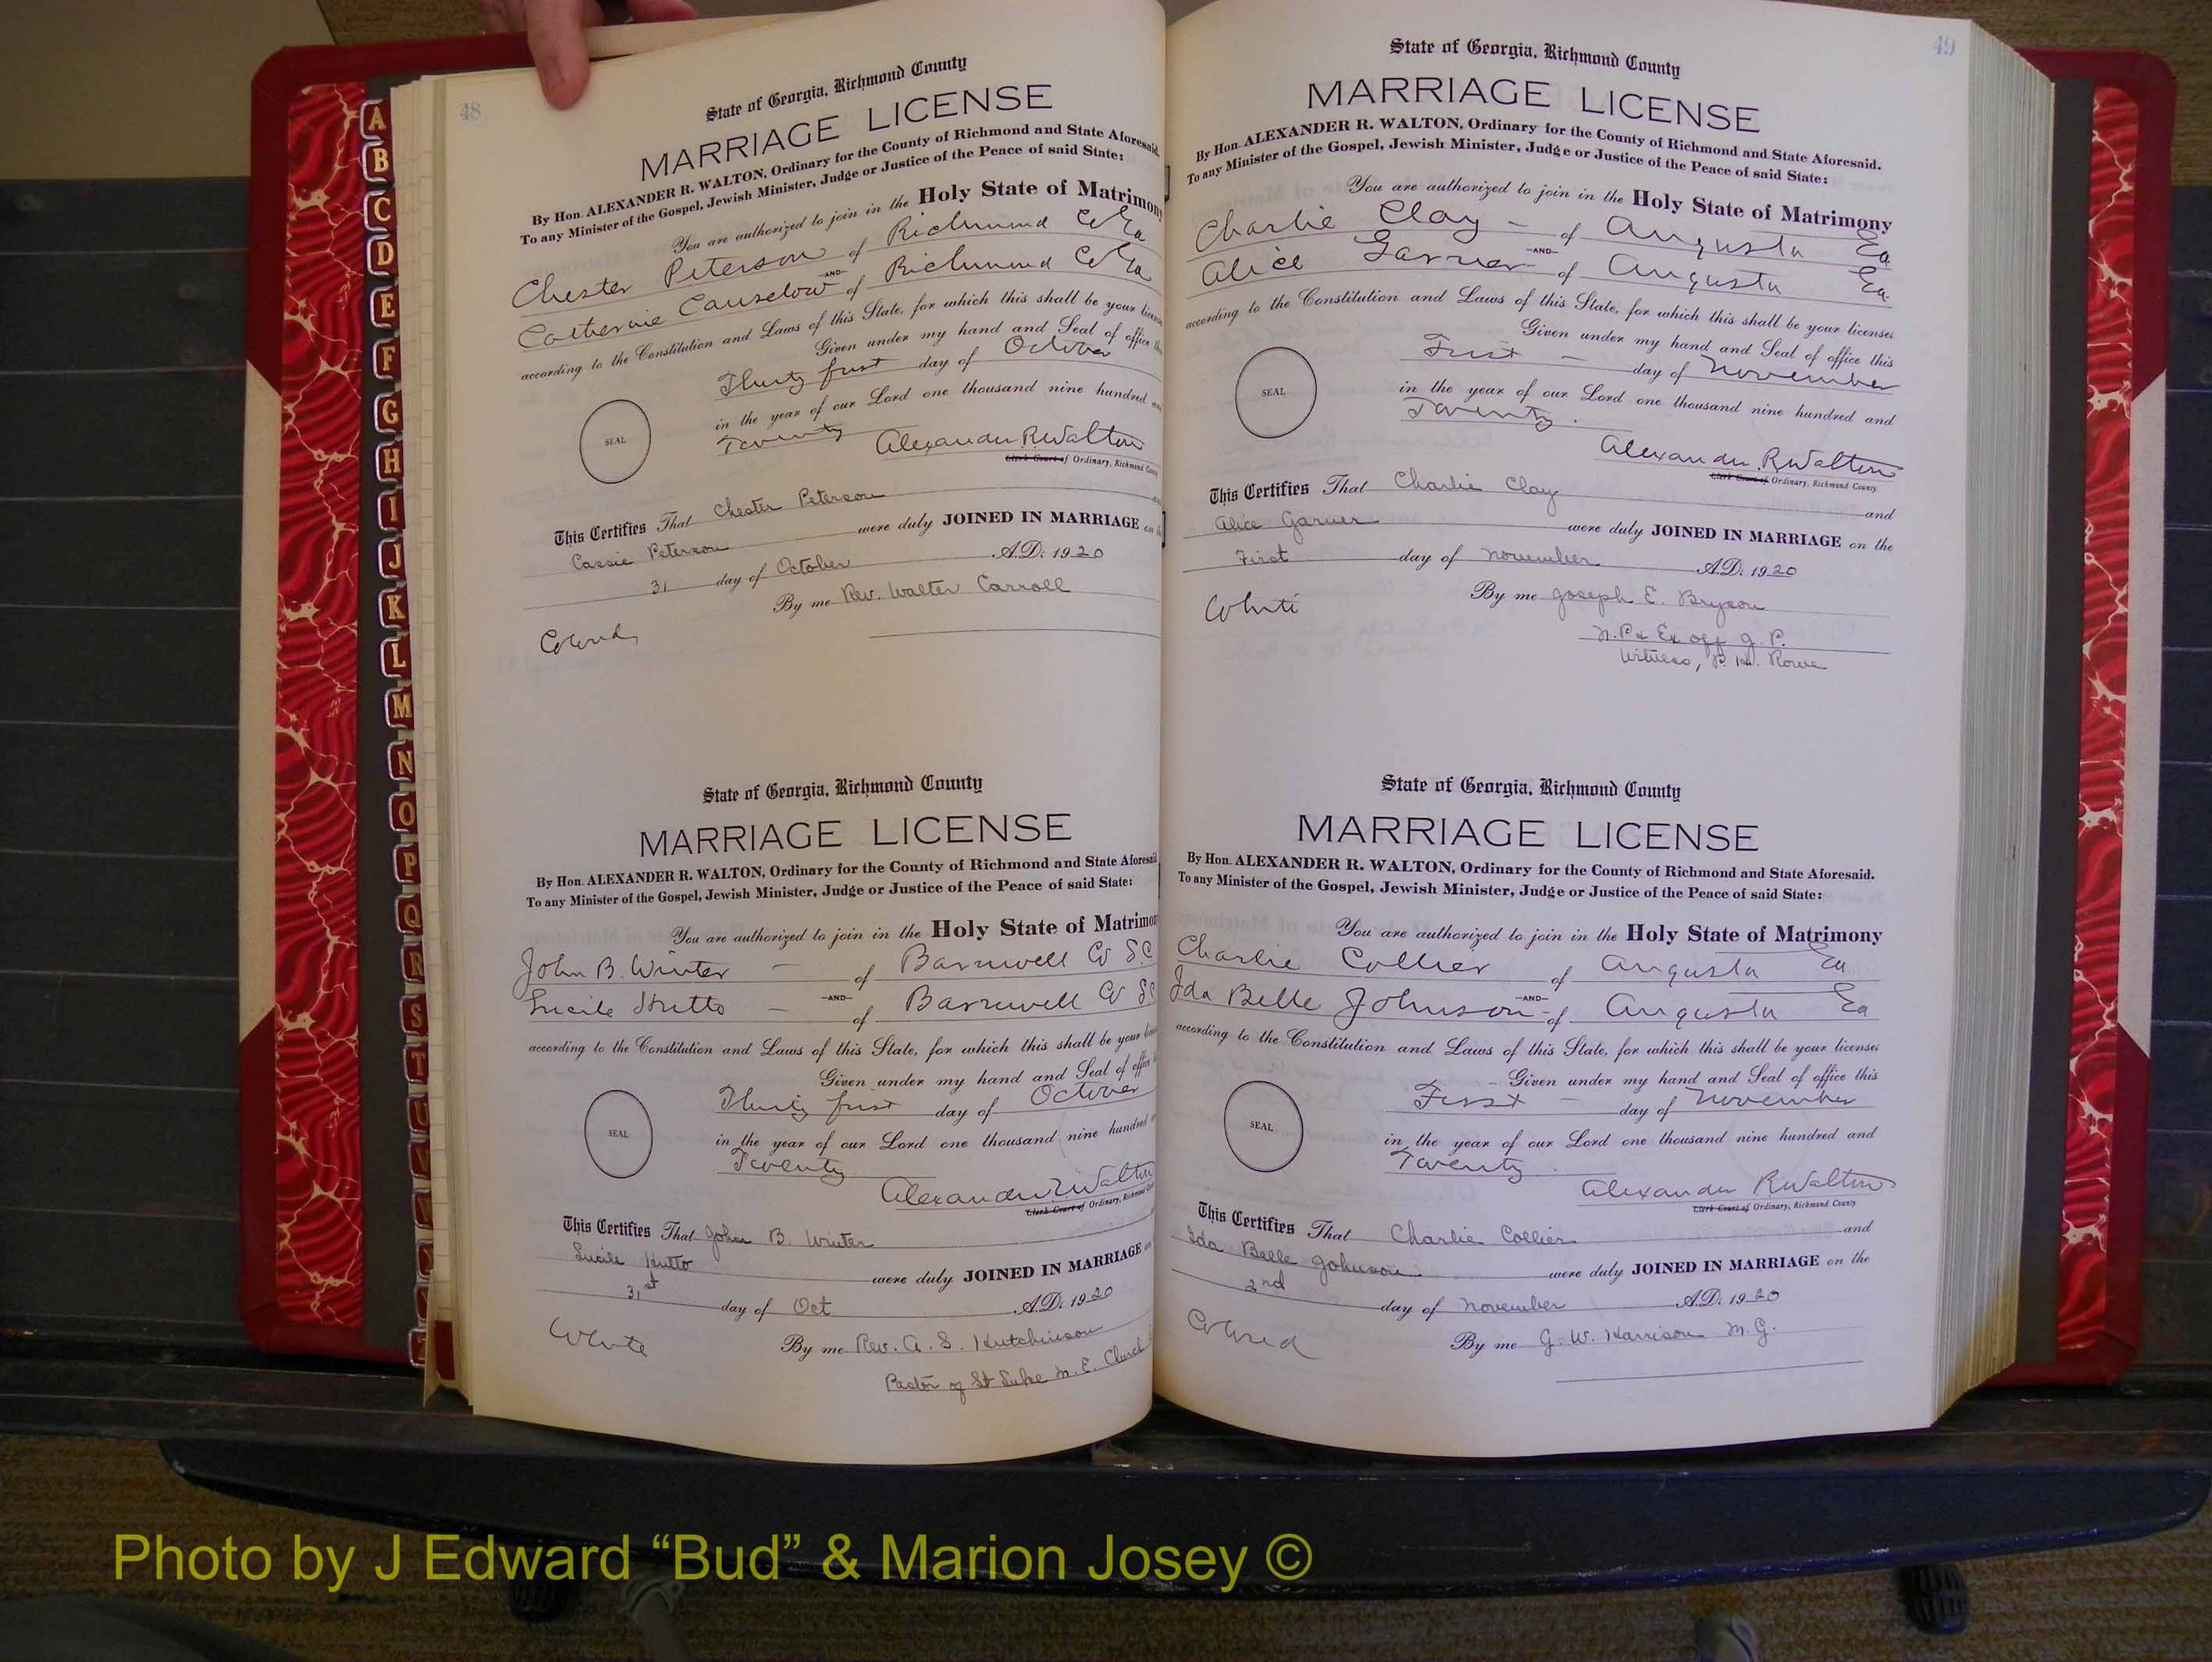 48
State of Georgia, Richmond County
MARRIAGE LICENSE
By Hon. ALEXANDER R. WALTON, Ordinary for the County of Richmond and State Aforesaid.
To any Minister of the Gospel, Jewish Minister, Judge or Justice of the Peace of said State:
You are authorized to join in the Holy State of Matrimony
Chester Peterson of Richmond Co Ga
-AND-
Catherine Causelow of Richmond Co Ga
according to the Constitution and Laws of this State, for which this shall be your license
Given under my hand and Seal of office this
Thirty first day of October
in the year of our Lord one thousand nine hundred and
Twenty
SEAL
Alexander R. Walton
Clerk Court of Ordinary, Richmond County
This Certifies That Chester Peterson and
Cassie Peterson were duly JOINED IN MARRIAGE on the
31 day of October A.D. 1920
By me Rev. Walter Carroll
Colored
State of Georgia, Richmond County
MARRIAGE LICENSE
By Hon. ALEXANDER R. WALTON, Ordinary for the County of Richmond and State Aforesaid
To any Minister of the Gospel, Jewish Minister, Judge or Justice of the Peace of said State:
You are authorized to join in the Holy State of Matrimony
John B. Winter - of Barnwell Co S.C
-AND-
Lucile Hutto - of Barnwell Co SC
according to the Constitution and Laws of this State, for which this shall be your license
Given under my hand and Seal of office
Thirty first day of October
in the year of our Lord one thousand nine hundred
Twenty
SEAL
Alexander R Walton
Clerk Court of Ordinary, Richmond
This Certifies That John B. Winter
Lucile Hutto were duly JOINED IN MARRIAGE
31st day of Oct A.D. 1920
By me Rev. A. S. Hutchinson
Pastor of St Luke M. E. Church
White
49
State of Georgia, Richmond County
MARRIAGE LICENSE
By Hon. ALEXANDER R. WALTON, Ordinary for the County of Richmond and State Aforesaid.
To any Minister of the Gospel, Jewish Minister, Judge or Justice of the Peace of said State:
You are authorized to join in the Holy State of Matrimony
Charlie Clay - of Augusta Ga
-AND-
Alice Garner of Augusta Ga
according to the Constitution and Laws of this State, for which this shall be your license:
Given under my hand and Seal of office this
First - day of November
in the year of our Lord one thousand nine hundred and
Twenty.
SEAL
Alexander R Walton
Clerk Court of Ordinary, Richmond County
This Certifies That Charlie Clay and
Alice Garner were duly JOINED IN MARRIAGE on the
First day of November A.D. 1920
By me Joseph E. Bryson
N.P & Ex off J. P.
Witness, B. H. Rowe
White
State of Georgia, Richmond County
MARRIAGE LICENSE
By Hon. ALEXANDER R. WALTON, Ordinary for the County of Richmond and State Aforesaid.
To any Minister of the Gospel, Jewish Minister, Judge or Justice of the Peace of said State:
You are authorized to join in the Holy State of Matrimony
Charlie Collier of Augusta Ga
-AND-
Ida Belle Johnson of Augusta Ga
according to the Constitution and Laws of this State, for which this shall be your license:
Given under my hand and Seal of office this
First - day of November
in the year of our Lord one thousand nine hundred and
Twenty.
SEAL
Alexander R Walton
Clerk Court of Ordinary, Richmond County
This Certifies That Charlie Collier and
Ida Belle Johnson were duly JOINED IN MARRIAGE on the
2nd day of November A.D. 1920
By me G. W. Harrison M. G.
Colored
A
B
C
D
E
F
G
H
I
J
K
L
M
N
O
P
Q
R
S
T
U
V
W
Photo by J Edward “Bud” & Marion Josey ©